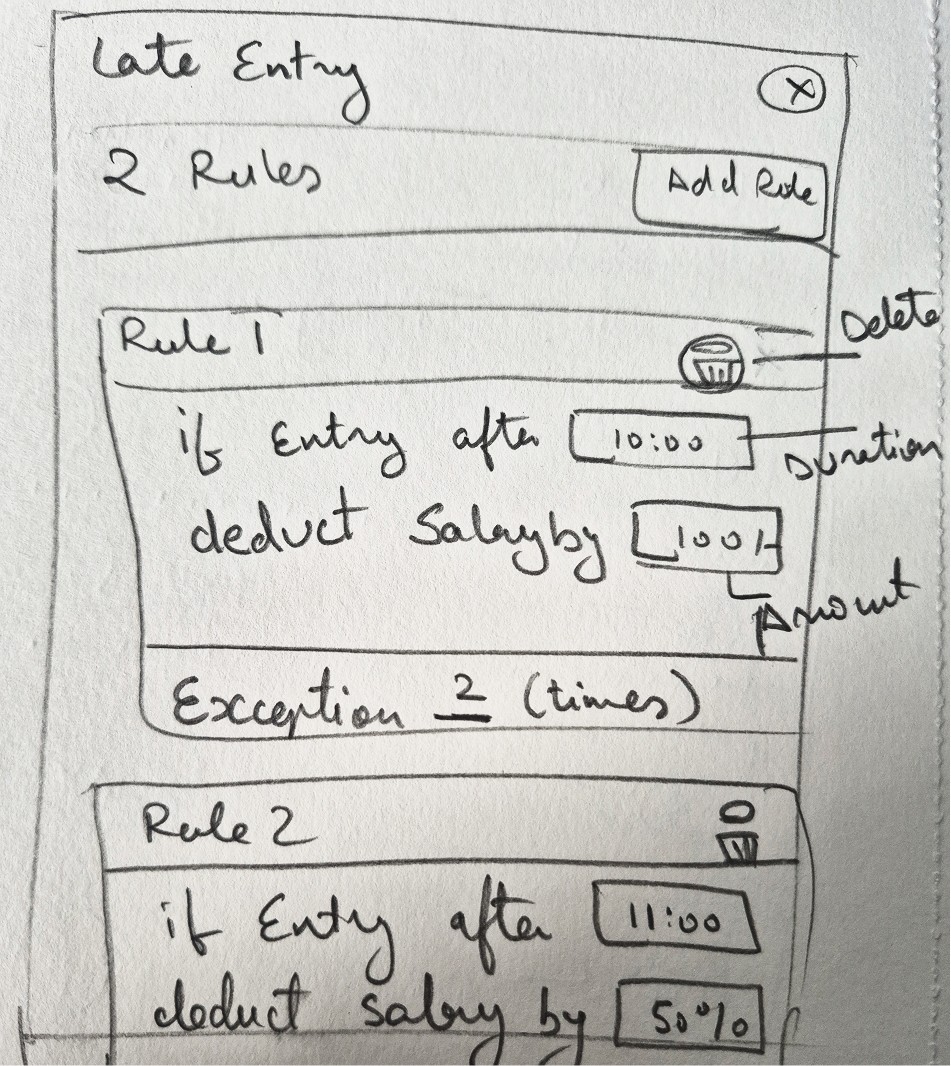 Late Entry
X
2 Rules
Add Rule
Rule 1
Delete
if Entry after 10:00
Duration
deduct Salary by 100/-
Amount
Exception 2 (times)
Rule 2
if Entry after 11:00
deduct salary by 50%